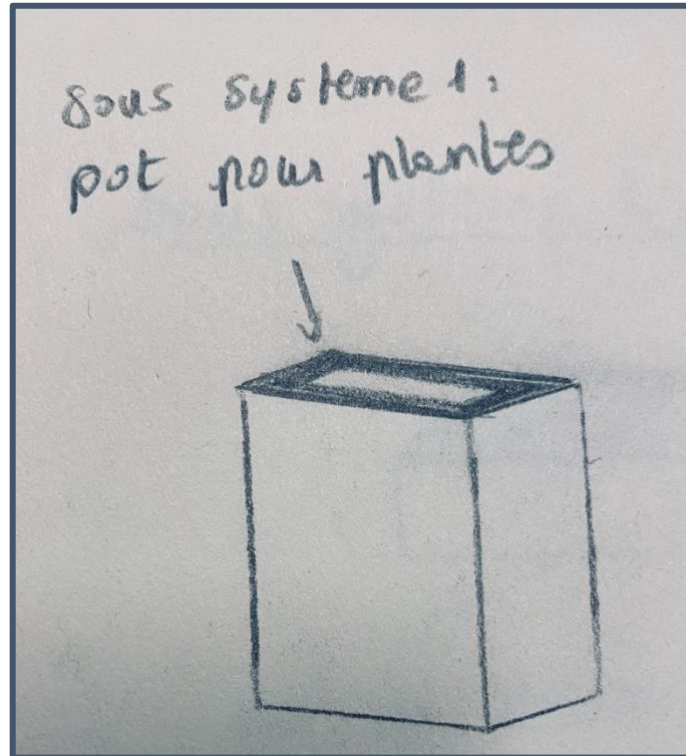 Sous systeme 1:
pot pour plantes